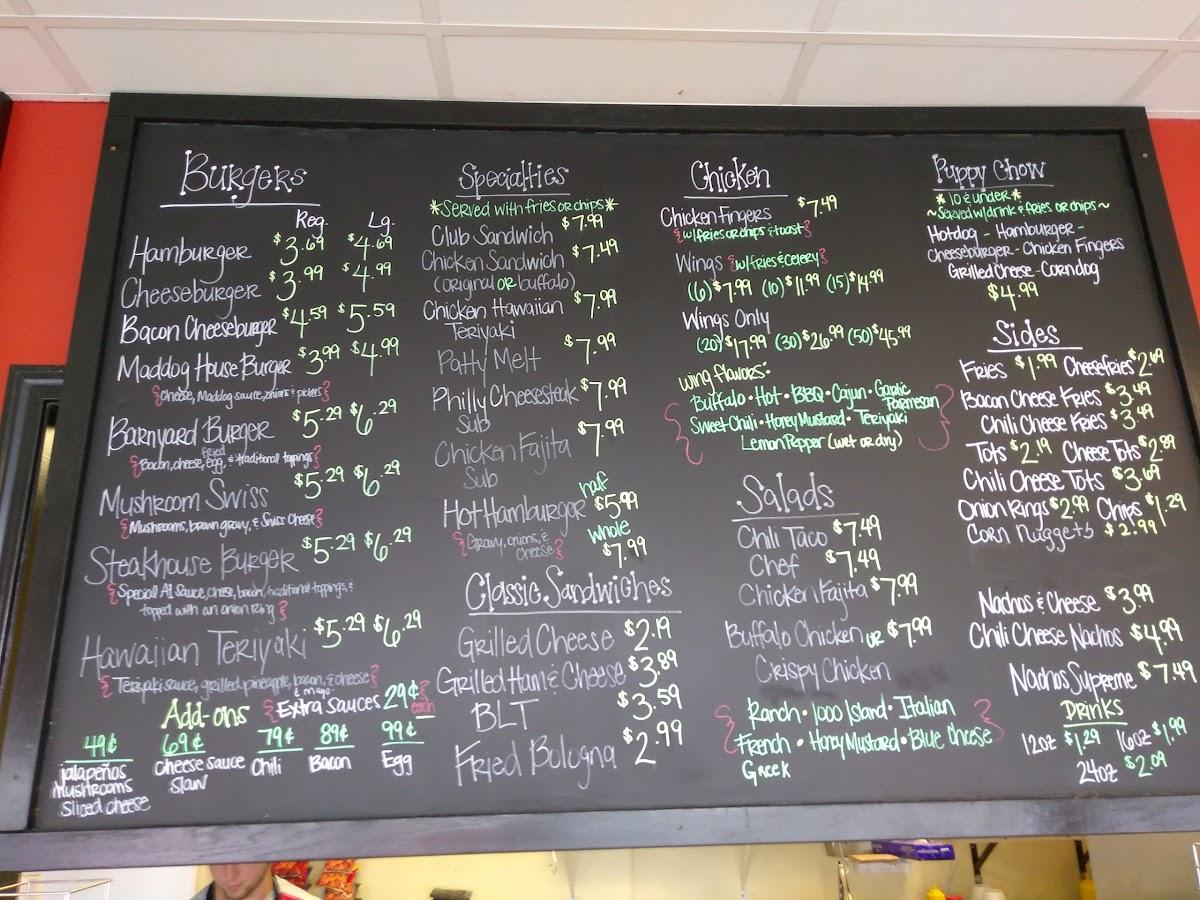 Burgers
Reg. Lg.
Hamburger $3.69 $4.69
Cheeseburger $3.99 $4.99
Bacon Cheeseburger $4.59 $5.59
Maddog House Burger $3.99 $4.99
{Cheese, Maddog sauce, onions & pickles}
Barnyard Burger $5.29 $6.29
fried
{Bacon, cheese, egg, & traditional toppings}
Mushroom Swiss $5.29 $6.29
{Mushrooms, brown gravy, & Swiss Cheese}
Steakhouse Burger $5.29 $6.29
{Special A1 Sauce, cheese, bacon, traditional toppings, &
topped with an onion ring}
Hawaiian Teriyaki $5.29 $6.29
{Teriyaki sauce, grilled pineapple, bacon, & cheese}
& mayo
Add-ons {Extra sauces 29¢ each}
49¢ 69¢ 79¢ 89¢ 99¢
jalapeños cheese sauce Chili Bacon Egg
Mushrooms slaw
Sliced cheese
Specialties
*Served with fries or chips*
Club Sandwich $7.99
Chicken Sandwich $7.49
(original OR buffalo)
Chicken Hawaiian $7.99
Teriyaki
Patty Melt $7.99
Philly Cheesesteak $7.99
Sub
Chicken Fajita $7.99
Sub
half
Hot Hamburger $5.99
{Gravy, onions, & whole
cheese} $7.99
Classic Sandwiches
Grilled Cheese $2.19
Grilled Ham & Cheese $3.89
BLT $3.59
Fried Bologna $2.99
Chicken
Chicken Fingers $7.49
{w/fries or chips & toast}
Wings {w/fries & Celery}
(6) $7.99 (10) $11.99 (15) $14.99
Wings Only
(20) $17.99 (30) $26.99 (50) $45.99
Wing flavors:
{Buffalo • Hot • BBQ • Cajun • Garlic Parmesan
Sweet Chili • Honey Mustard • Teriyaki
Lemon Pepper (wet or dry)}
Salads
Chili Taco $7.49
Chef $7.49
Chicken Fajita $7.99
Buffalo Chicken OR $7.99
Crispy Chicken
{Ranch • 1000 Island • Italian
French • Honey Mustard • Blue Cheese}
Greek
Puppy Chow
*10 & under*
~Served w/drink & fries or chips~
Hotdog - Hamburger -
Cheeseburger - Chicken Fingers
Grilled Cheese - Corndog
$4.99
Sides
Fries $1.99 Cheese fries $2.69
Bacon Cheese Fries $3.49
Chili Cheese Fries $3.49
Tots $2.19 Cheese Tots $2.89
Chili Cheese Tots $3.69
Onion Rings $2.99 Chips $1.29
Corn Nuggets $2.99
Nachos & Cheese $3.99
Chili Cheese Nachos $4.99
Nachos Supreme $7.49
Drinks
12oz $1.29 16oz $1.99
24oz $2.09